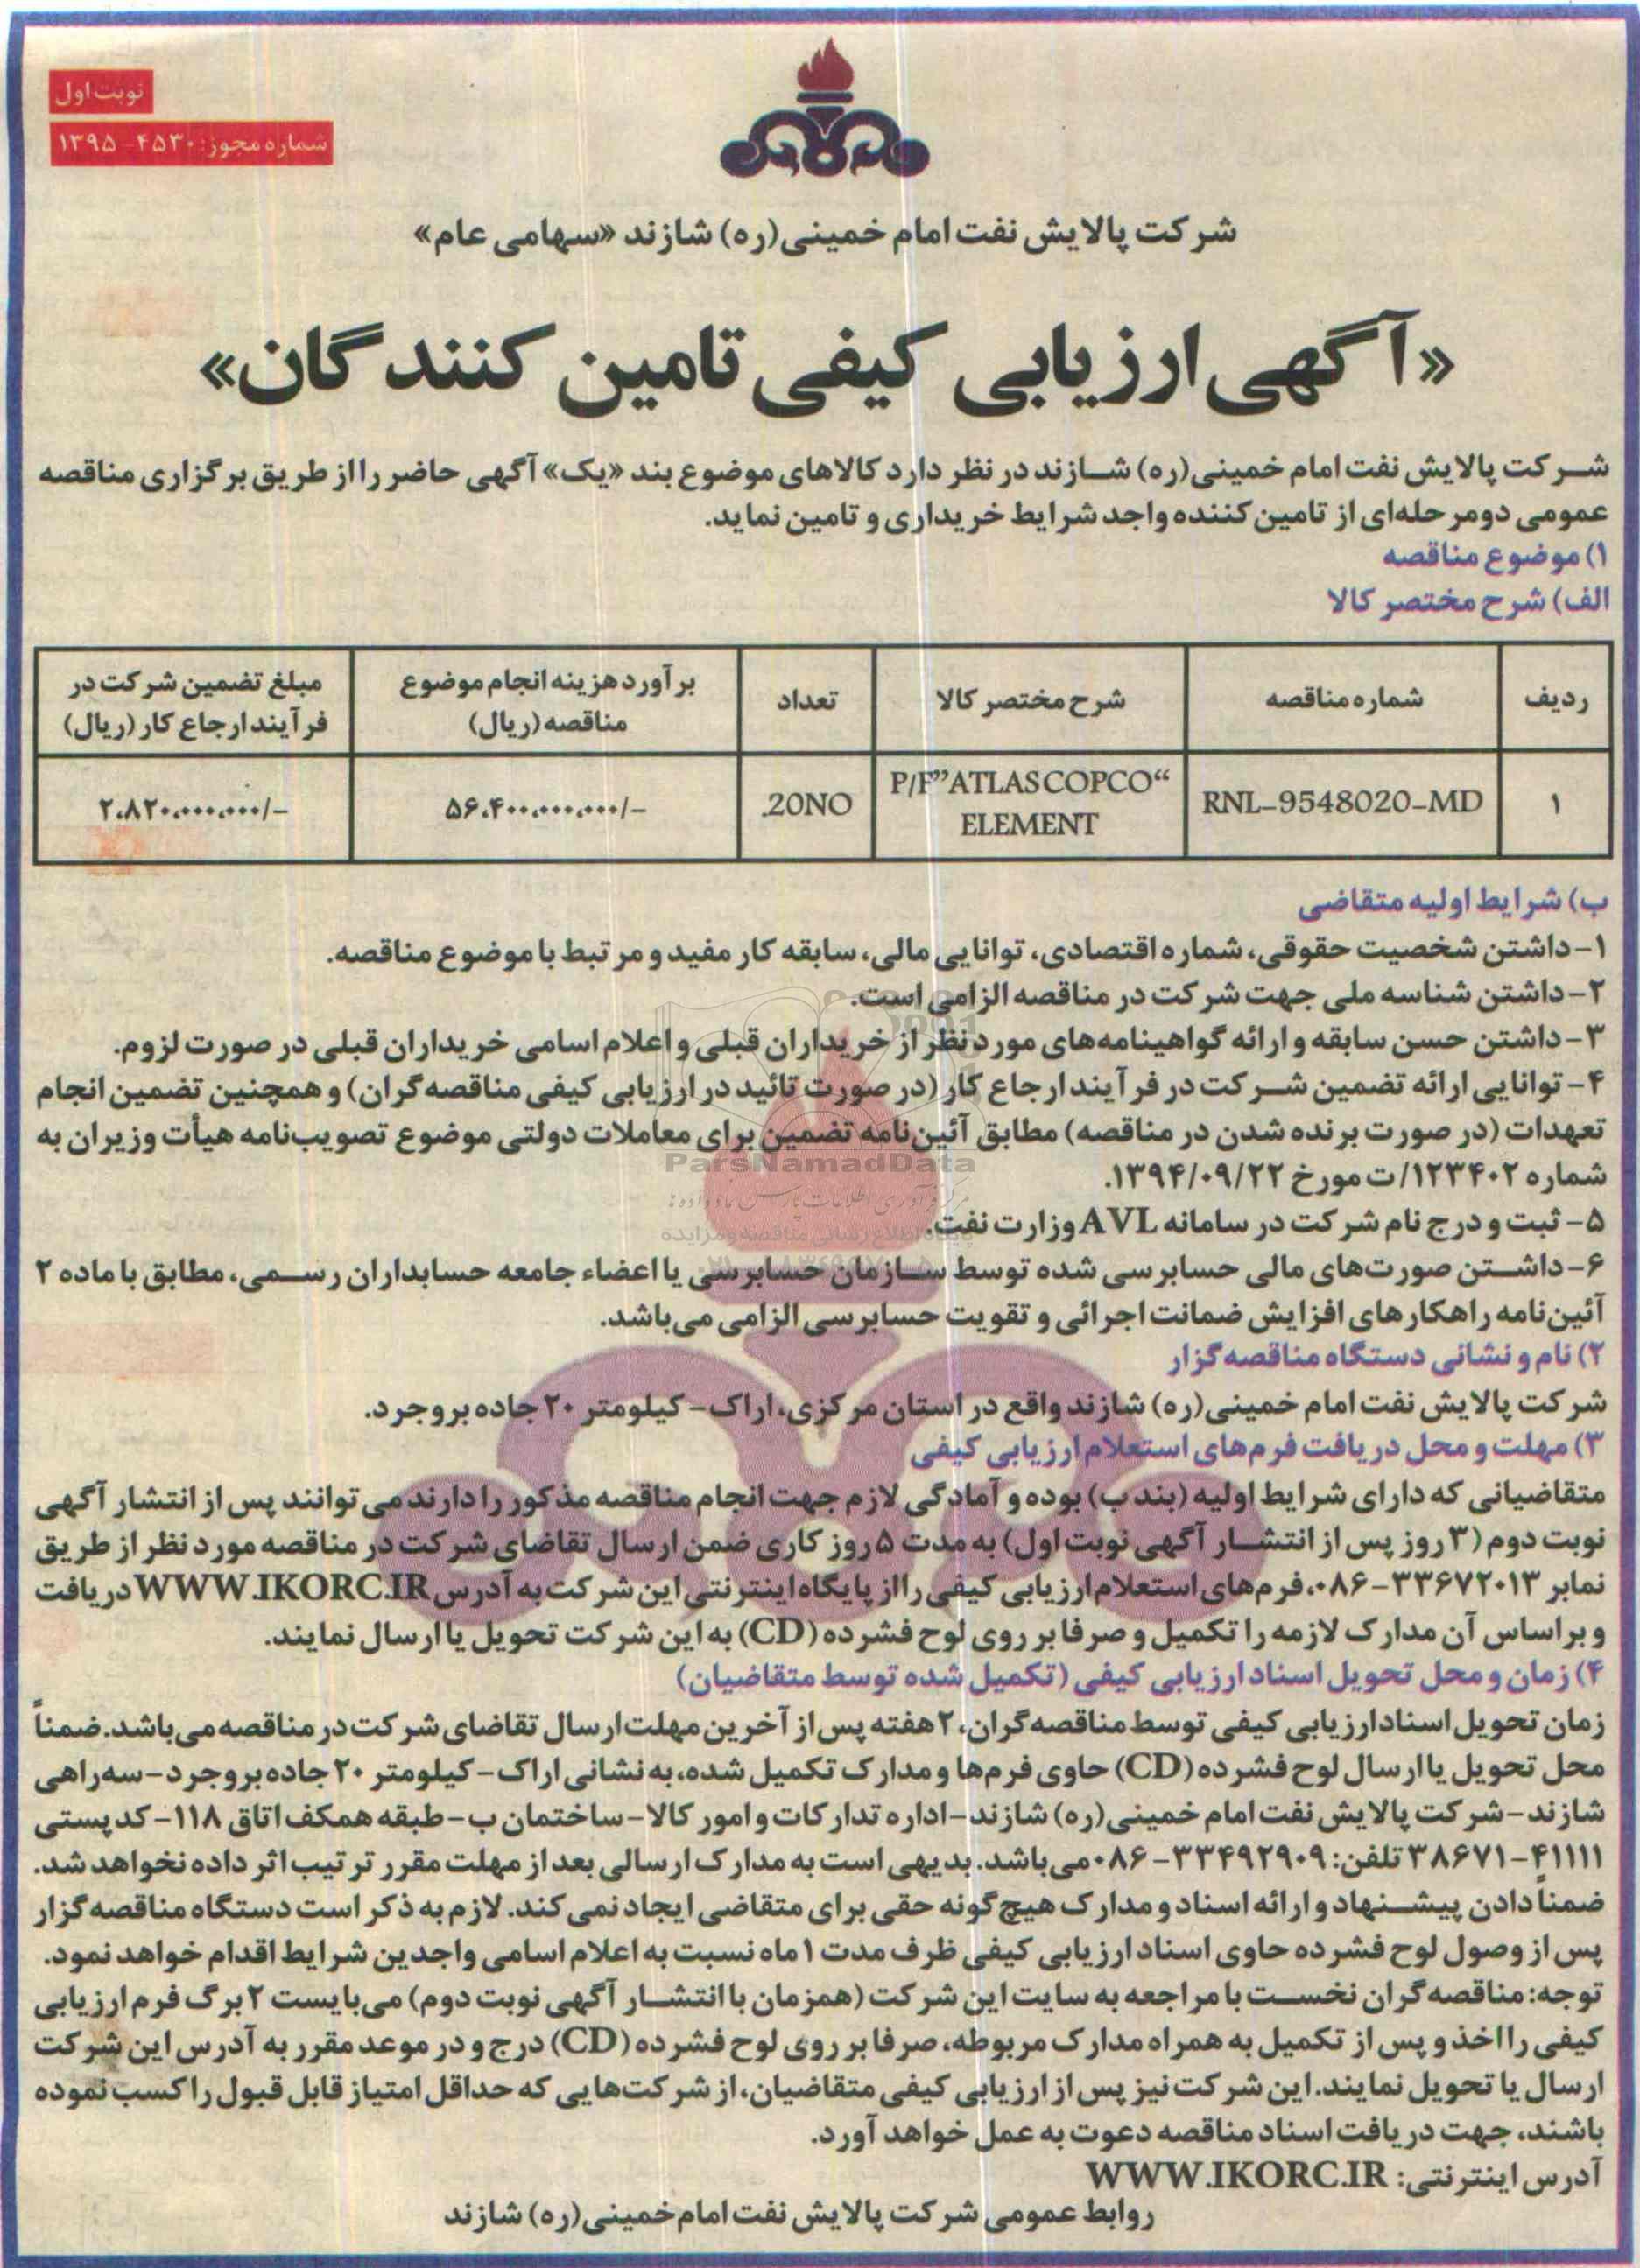 نوبت اول
شماره مجوز: ۴۵۳۰- ۱۳۹۵
شرکت پالایش نفت امام خمینی(ره) شازند «سهامی عام»
«آگهی ارزیابی کیفی تامین کنندگان»
شرکت پالایش نفت امام خمینی(ره) شازند در نظر دارد کالاهای موضوع بند «یک» آگهی حاضر را از طریق برگزاری مناقصه
عمومی دومرحله‌ای از تامین کننده واجد شرایط خریداری و تامین نماید.
۱) موضوع مناقصه
الف) شرح مختصر کالا
ردیف | شماره مناقصه | شرح مختصر کالا | تعداد | برآورد هزینه انجام موضوع مناقصه (ریال) | مبلغ تضمین شرکت در فرآیند ارجاع کار (ریال)
۱ | RNL-9548020-MD | P/F”ATLAS COPCO“ ELEMENT | .20NO | ۵۶،۴۰۰،۰۰۰،۰۰۰/- | ۲،۸۲۰،۰۰۰،۰۰۰/-
ب) شرایط اولیه متقاضی
۱- داشتن شخصیت حقوقی، شماره اقتصادی، توانایی مالی، سابقه کار مفید و مرتبط با موضوع مناقصه.
۲- داشتن شناسه ملی جهت شرکت در مناقصه الزامی است.
۳- داشتن حسن سابقه و ارائه گواهینامه‌های مورد نظر از خریداران قبلی و اعلام اسامی خریداران قبلی در صورت لزوم.
۴- توانایی ارائه تضمین شرکت در فرآیند ارجاع کار (در صورت تائید در ارزیابی کیفی مناقصه گران) و همچنین تضمین انجام
تعهدات (در صورت برنده شدن در مناقصه) مطابق آئین‌نامه تضمین برای معاملات دولتی موضوع تصویب‌نامه هیأت وزیران به
شماره ۱۲۳۴۰۲/ت مورخ ۱۳۹۴/۰۹/۲۲.
ParsNamadData
۵- ثبت و درج نام شرکت در سامانه AVL وزارت نفت.
۶- داشتن صورت‌های مالی حسابرسی شده توسط سازمان حسابرسی یا اعضاء جامعه حسابداران رسمی، مطابق با ماده ۲
آئین‌نامه راهکارهای افزایش ضمانت اجرائی و تقویت حسابرسی الزامی می‌باشد.
۲) نام و نشانی دستگاه مناقصه گزار
شرکت پالایش نفت امام خمینی(ره) شازند واقع در استان مرکزی، اراک- کیلومتر ۲۰ جاده بروجرد.
۳) مهلت و محل دریافت فرم‌های استعلام ارزیابی کیفی
متقاضیانی که دارای شرایط اولیه (بند ب) بوده و آمادگی لازم جهت انجام مناقصه مذکور را دارند می توانند پس از انتشار آگهی
نوبت دوم (۳ روز پس از انتشار آگهی نوبت اول) به مدت ۵ روز کاری ضمن ارسال تقاضای شرکت در مناقصه مورد نظر از طریق
نمابر ۳۳۶۷۲۰۱۳-۰۸۶، فرم‌های استعلام ارزیابی کیفی را از پایگاه اینترنتی این شرکت به آدرس WWW.IKORC.IR دریافت
و براساس آن مدارک لازمه را تکمیل و صرفا بر روی لوح فشرده (CD) به این شرکت تحویل یا ارسال نمایند.
۴) زمان و محل تحویل اسناد ارزیابی کیفی (تکمیل شده توسط متقاضیان)
زمان تحویل اسناد ارزیابی کیفی توسط مناقصه گران، ۲ هفته پس از آخرین مهلت ارسال تقاضای شرکت در مناقصه می‌باشد. ضمناً
محل تحویل یا ارسال لوح فشرده (CD) حاوی فرم‌ها و مدارک تکمیل شده، به نشانی اراک- کیلومتر ۲۰ جاده بروجرد- سه‌راهی
شازند- شرکت پالایش نفت امام خمینی(ره) شازند- اداره تدارکات و امور کالا- ساختمان ب- طبقه همکف اتاق ۱۱۸- کد پستی
۴۱۱۱۱-۳۸۶۷۱ تلفن: ۳۳۴۹۲۹۰۹-۰۸۶ می‌باشد. بدیهی است به مدارک ارسالی بعد از مهلت مقرر ترتیب اثر داده نخواهد شد.
ضمناً دادن پیشنهاد و ارائه اسناد و مدارک هیچ گونه حقی برای متقاضی ایجاد نمی کند. لازم به ذکر است دستگاه مناقصه گزار
پس از وصول لوح فشرده حاوی اسناد ارزیابی کیفی ظرف مدت ۱ ماه نسبت به اعلام اسامی واجدین شرایط اقدام خواهد نمود.
توجه: مناقصه گران نخست با مراجعه به سایت این شرکت (همزمان با انتشار آگهی نوبت دوم) می‌بایست ۲ برگ فرم ارزیابی
کیفی را اخذ و پس از تکمیل به همراه مدارک مربوطه، صرفا بر روی لوح فشرده (CD) درج و در موعد مقرر به آدرس این شرکت
ارسال یا تحویل نمایند. این شرکت نیز پس از ارزیابی کیفی متقاضیان، از شرکت‌هایی که حداقل امتیاز قابل قبول را کسب نموده
باشند، جهت دریافت اسناد مناقصه دعوت به عمل خواهد آورد.
آدرس اینترنتی: WWW.IKORC.IR
روابط عمومی شرکت پالایش نفت امام خمینی(ره) شازند